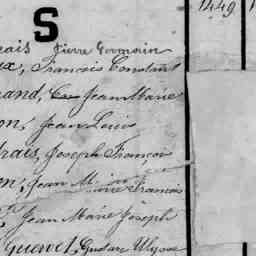 S
1449
rais Pierre Germain
ux, François Constant
rand, Jean Marie
on, Jean Louis
drais, Joseph François
on, Jean Marie Francois
Jean Marie Joseph
Guewel, Gustave Ulysse